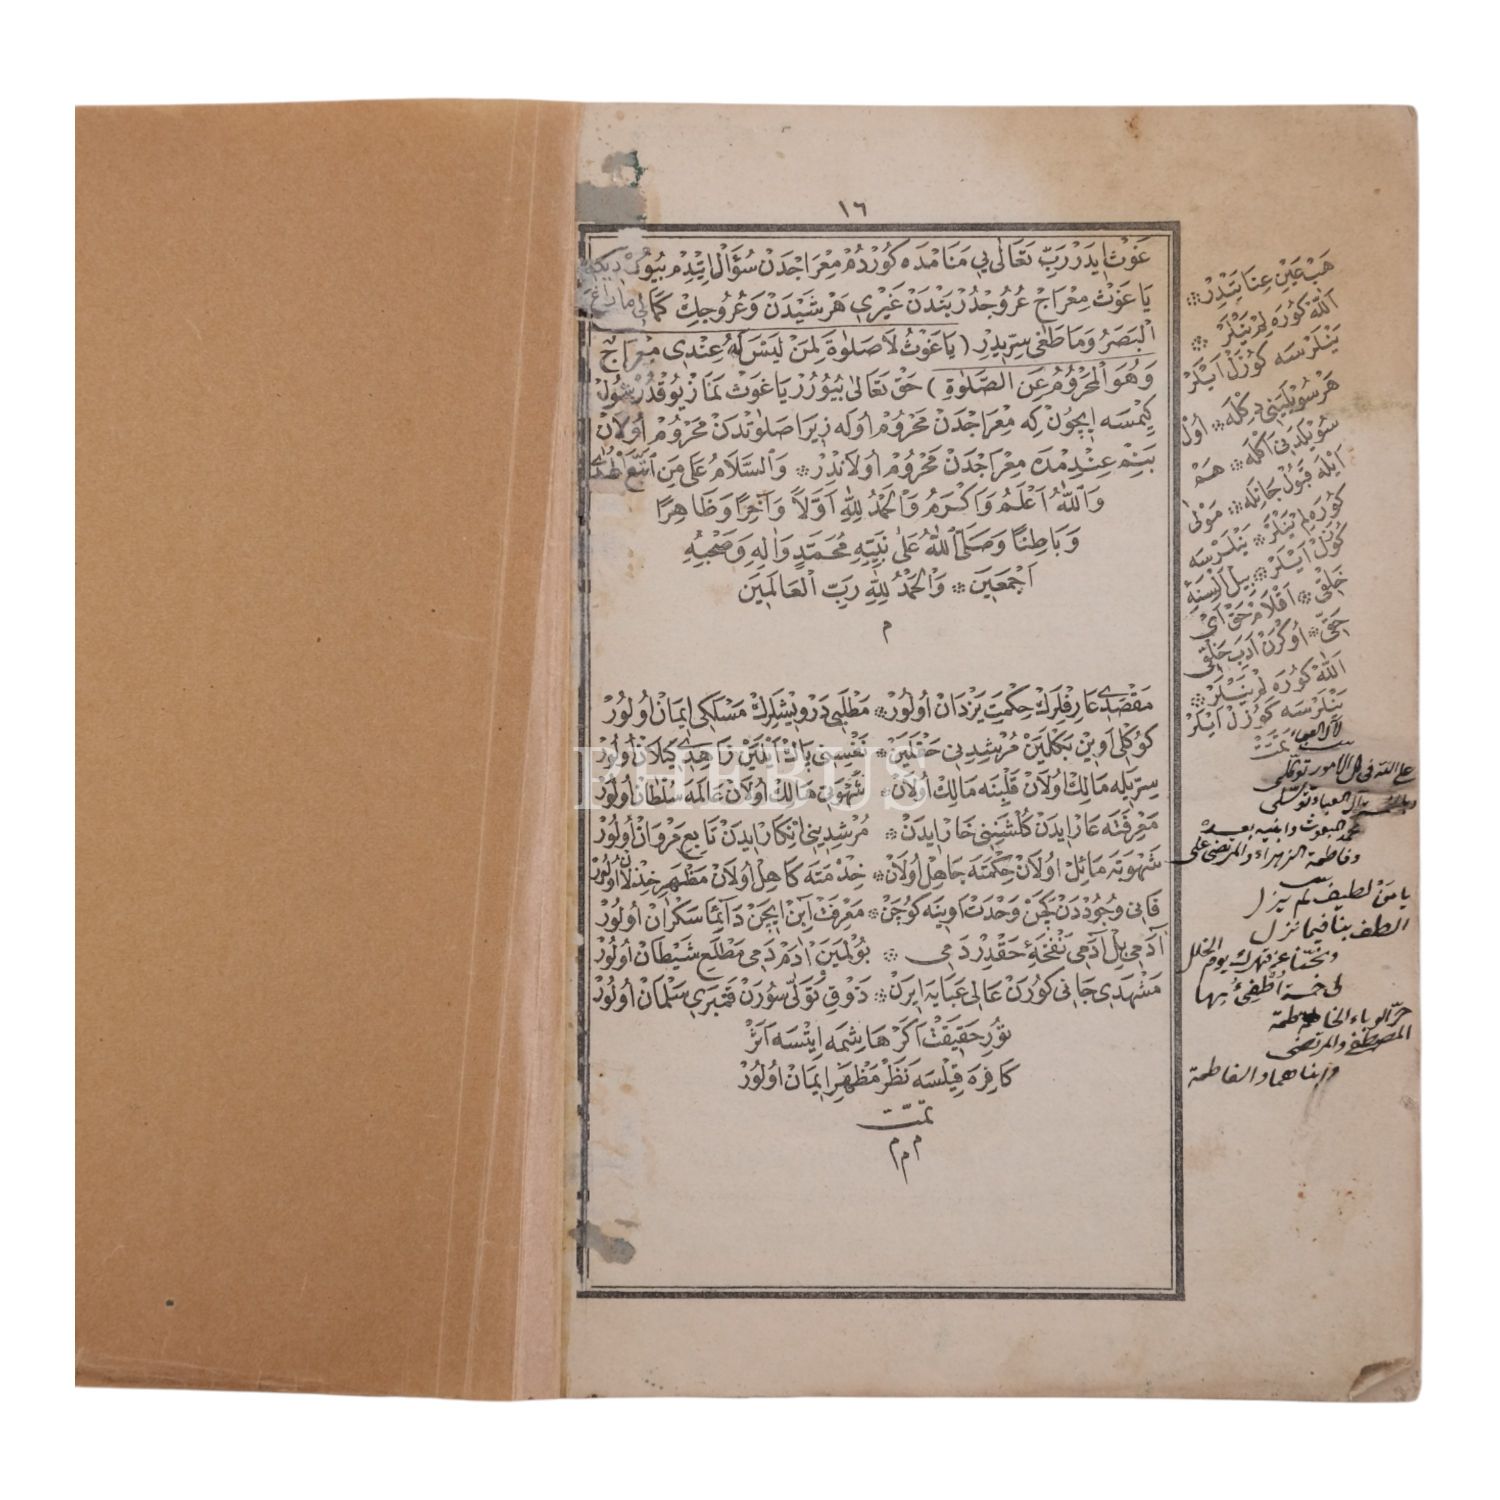 ١٦
غَوْث اِيدَرْ رَبِّ تَعَالٰى يِى مَنَامْدَه كُورْدُمْ مِعْرَاجْدَنْ سُؤَالْ اِيتْدِمْ بُيُورْدِيكِه
يَا غَوْث مِعْرَاجْ عُرُوجْدُرْ بَنْدَنْ غَيْرِى هَرْ شَيْدَنْ وَعُرُوجِكْ كَمَالِى مَا زَاغَ
الْبَصَرُ وَمَا طَغٰى سِرِّيدِرْ (يَا غَوْثُ لَا صَلٰوةَ لِمَنْ لَيْسَ لَهُ عِنْدِى مِعْرَاجٌ
وَهُوَ الْمَحْرُومُ عَنِ الصَّلٰوةِ) حَقْ تَعَالٰى بُيُورُرْ يَا غَوْث نَمَازْ يُوقْدُرْ شُولْ
كِيمْسَه اِيچُونْ كِه مِعْرَاجْدَنْ مَحْرُومْ اُولَه زِيرَا صَلٰوتْدَنْ مَحْرُومْ اُولَانْ
بَنِمْ عِنْدِمْدَه مِعْرَاجْدَنْ مَحْرُومْ اُولَانْدِرْ ❊ وَالسَّلَامُ عَلٰى مَنِ اتَّبَعَ الْهُدٰى
وَاللّٰهُ اَعْلَمُ وَاَكْرَمُ وَالْحَمْدُ لِلّٰهِ اَوَّلًا وَآخِرًا وَظَاهِرًا
وَبَاطِنًا وَصَلَّى اللّٰهُ عَلٰى نَبِيِّهِ مُحَمَّدٍ وَاٰلِهِ وَصَحْبِهِ
اَجْمَعِينَ ❊ وَالْحَمْدُ لِلّٰهِ رَبِّ الْعَالَمِينَ
م
مَقْصَدِى عَارِفْلَرِكْ حِكْمَتِ يَزْدَانْ اُولُورْ ❊ مَطْلَبِى دَرْوِيشْلَرِكْ مَسْلَكِى اِيمَانْ اُولُورْ
كُوكْلِى اَوِينْ بَكْلَيَنْ مُرْشِدِينِى حَقْلَيَنْ ❊ نَفْسِنِى پَاكْ اَيْلَيَنْ زَاهِدِى كِيلَانْ اُولُورْ
سِرِّيلَه مَالِكْ اُولَانْ قَلْبِنَه مَالِكْ اُولَانْ ❊ شَهْوَتِى مَالِكْ اُولَانْ عَالَمَه سُلْطَانْ اُولُورْ
مَعْرِفَتَه عَارْ اِيدَنْ كُلْشَنِنِى خَارْ اِيدَنْ ❊ مُرْشِدِينِى اِنْكَارْ اِيدَنْ تَابِعِ مَرْوَانْ اُولُورْ
شَهْوَتَه مَائِلْ اُولَانْ حِكْمَتَه جَاهِلْ اُولَانْ ❊ خِدْمَتَه كَاهِلْ اُولَانْ مَظْهَرِ خِذْلَانْ اُولُورْ
فَانِى وُجُودْدَنْ كَچَنْ وَحْدَتْ اَوِينَه كُوچَنْ ❊ مَعْرِفَتْ آبِنْ اِيچَنْ دَآئِمَا سَكْرَانْ اُولُورْ
آدَمِى بِلْ آدَمِى نَفْخَهٔ حَقْدِرْ دَمِى ❊ بُولْمَيَنْ اٰدَمْ دَمِى مَطْلَعِ شَيْطَانْ اُولُورْ
مَشْهَدِى جَانِى كُورَنْ عَالِى عَبَايَه اِيرَنْ ❊ ذَوْقِ تَوَلّٰى سُورَنْ قَنْبَرِى سَلْمَانْ اُولُورْ
نُورِ حَقِيقَتْ اَكَرْ هَاشِمَه اِيتْسَه اَثَرْ
كَافِرَه قِيلْسَه نَظَرْ مَظْهَرِ اِيمَانْ اُولُورْ
تمّت
م م م
هَبْ عَيْنِ عِنَايَتْدِرْ ❊
اَللّٰه كُورَه لِمْ نَيْلَرْ ❊
نَيْلَرْسَه كُوزَلْ اَيْلَرْ
هَرْ سُويْلَيَنِى دِكْلَه ❊ اُولْ
سُويْلَدَنِى اَكْلَه ❊ هَمْ
اَيْلَه قَبُولْ جَانْلَه ❊ مَوْلٰى
كُورَه لِمْ نَيْلَرْ ❊ نَيْلَرْسَه
كُوزَلْ اَيْلَرْ ❊ بِيلْ اَلْسِنَهٔ
خَلْقِى ❊ اَقْلَامِ حَقْ اَىْ
حَقِّى ❊ اُوكْرَنْ اَدَبِ خَلْقِى
اَللّٰه كُورَه لِمْ نَيْلَرْ ❊
نَيْلَرْسَه كُوزَلْ اَيْلَرْ
تَمَّتْ
لآل العباء
على الله فى كل الامور توكلى
آل العباء توسلى
محمد المبعوث وابنيه بعده
وفاطمة الزهراء والمرتضى على
يا من لطيف لم يزل
الطف بنا فيما نزل
ونجنا عن قهرك يوم الخلل
لى خمسة أطفئ بها
حرّ الوباء الحاطمة
المصطفى والمرتضى
وابناهما والفاطمة